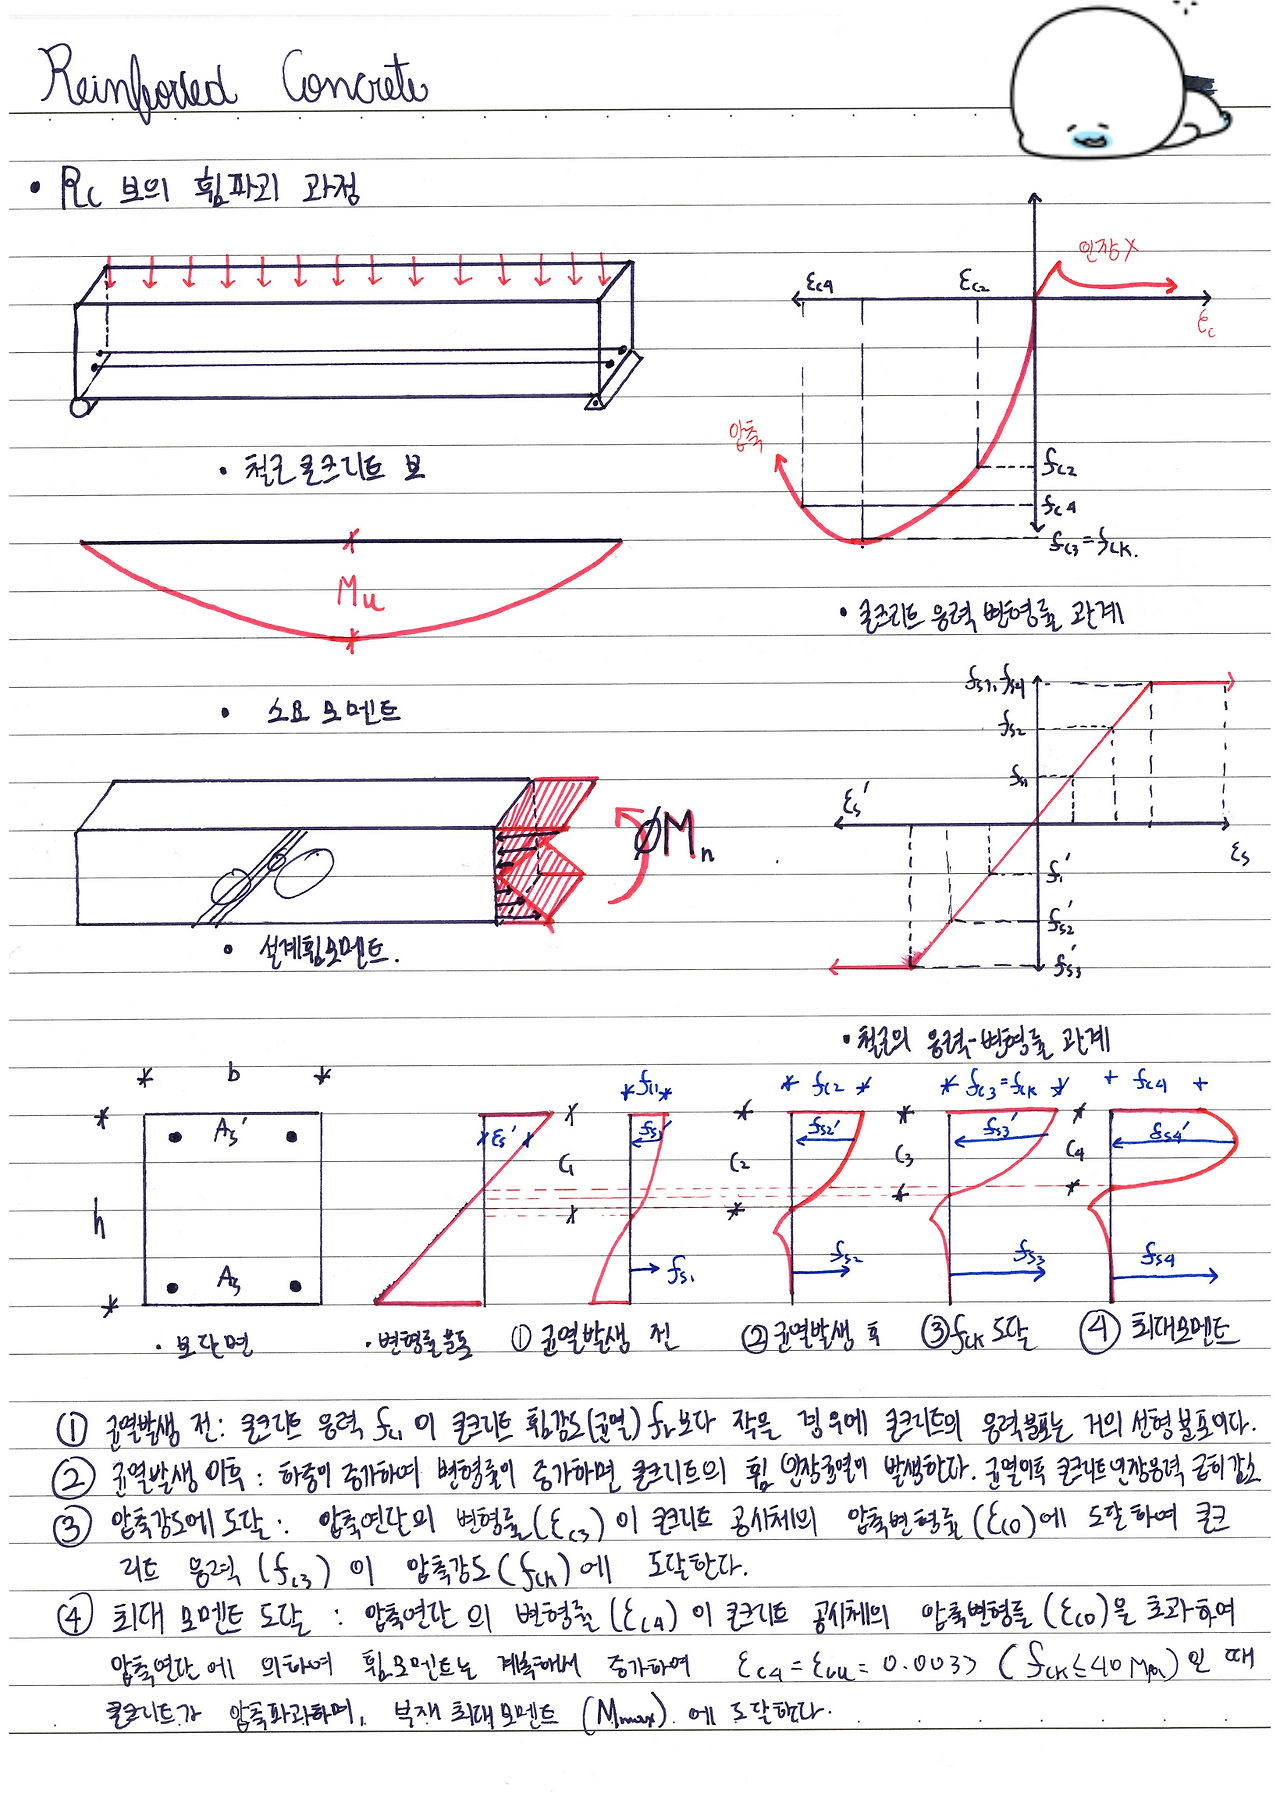 Reinforced Concrete
• Rc 보의 휨파괴 과정
인장 X
εc4 εc2
εc
압축
fc2
fc4
fc3=fck.
• 철근콘크리트 보
• 콘크리트 응력 변형률 관계
Mu
• 소요 모멘트
fs3, fs4
fs2
fs1
εs'
εs
fs1'
fs2'
fs3'
ØMn
• 설계휨모멘트.
• 철근의 응력-변형률 관계
b
h
As'
As
εs'
fc1 fc2 fc3=fck fc4
fs1' fs2' fs3' fs4'
C1 C2 C3 C4
fs1 fs2 fs3 fs4
• 보단면 • 변형률분포 ① 균열발생 전 ② 균열발생 후 ③ fck 도달 ④ 최대모멘트
① 균열발생 전: 콘크리트 응력 fc1 이 콘크리트 휨강도(균열) fr보다 작을 경우에 콘크리트의 응력분포는 거의 선형분포이다.
② 균열발생 이후 : 하중이 증가하여 변형률이 증가하면 콘크리트의 휨 인장균열이 발생한다. 균열이후 콘크리트 인장응력 급히 감소
③ 압축강도에 도달 : 압축연단의 변형률(εc3)이 콘크리트 공시체의 압축변형률(εc0)에 도달하여 콘크
리트 응력(fc3)이 압축강도(fck)에 도달한다.
④ 최대 모멘트 도달 : 압축연단의 변형률(εc4)이 콘크리트 공시체의 압축변형률(εc0)을 초과하여
압축연단에 의하여 휨모멘트는 계속해서 증가하여 εc4=εcu=0.0033 (fck≤40Mpa)일 때
콘크리트가 압축파괴하며, 부재 최대모멘트 (Mmax)에 도달한다.